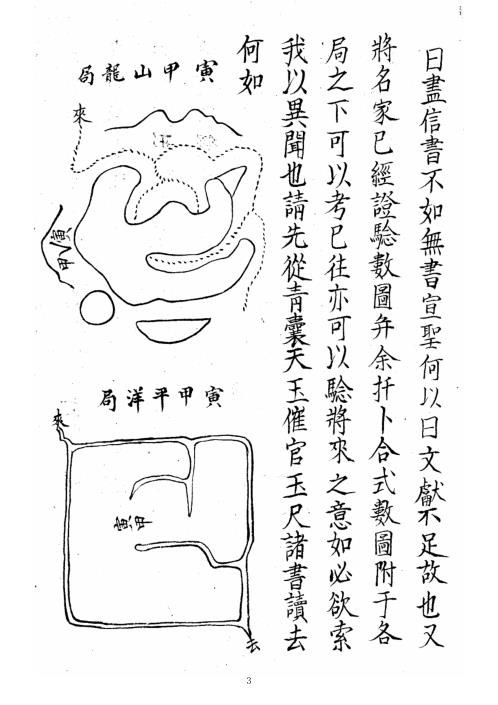 曰盡信書不如無書宣聖何以曰文獻不足故也又
將名家已經證驗數圖弁余扦卜合式數圖附于各
局之下可以考已往亦可以驗將來之意如必欲索
我以異聞也請先從青囊天玉催官玉尺諸書讀去
何如
寅甲山龍局
來
寅甲
寅甲平洋局
來
寅甲
去
3